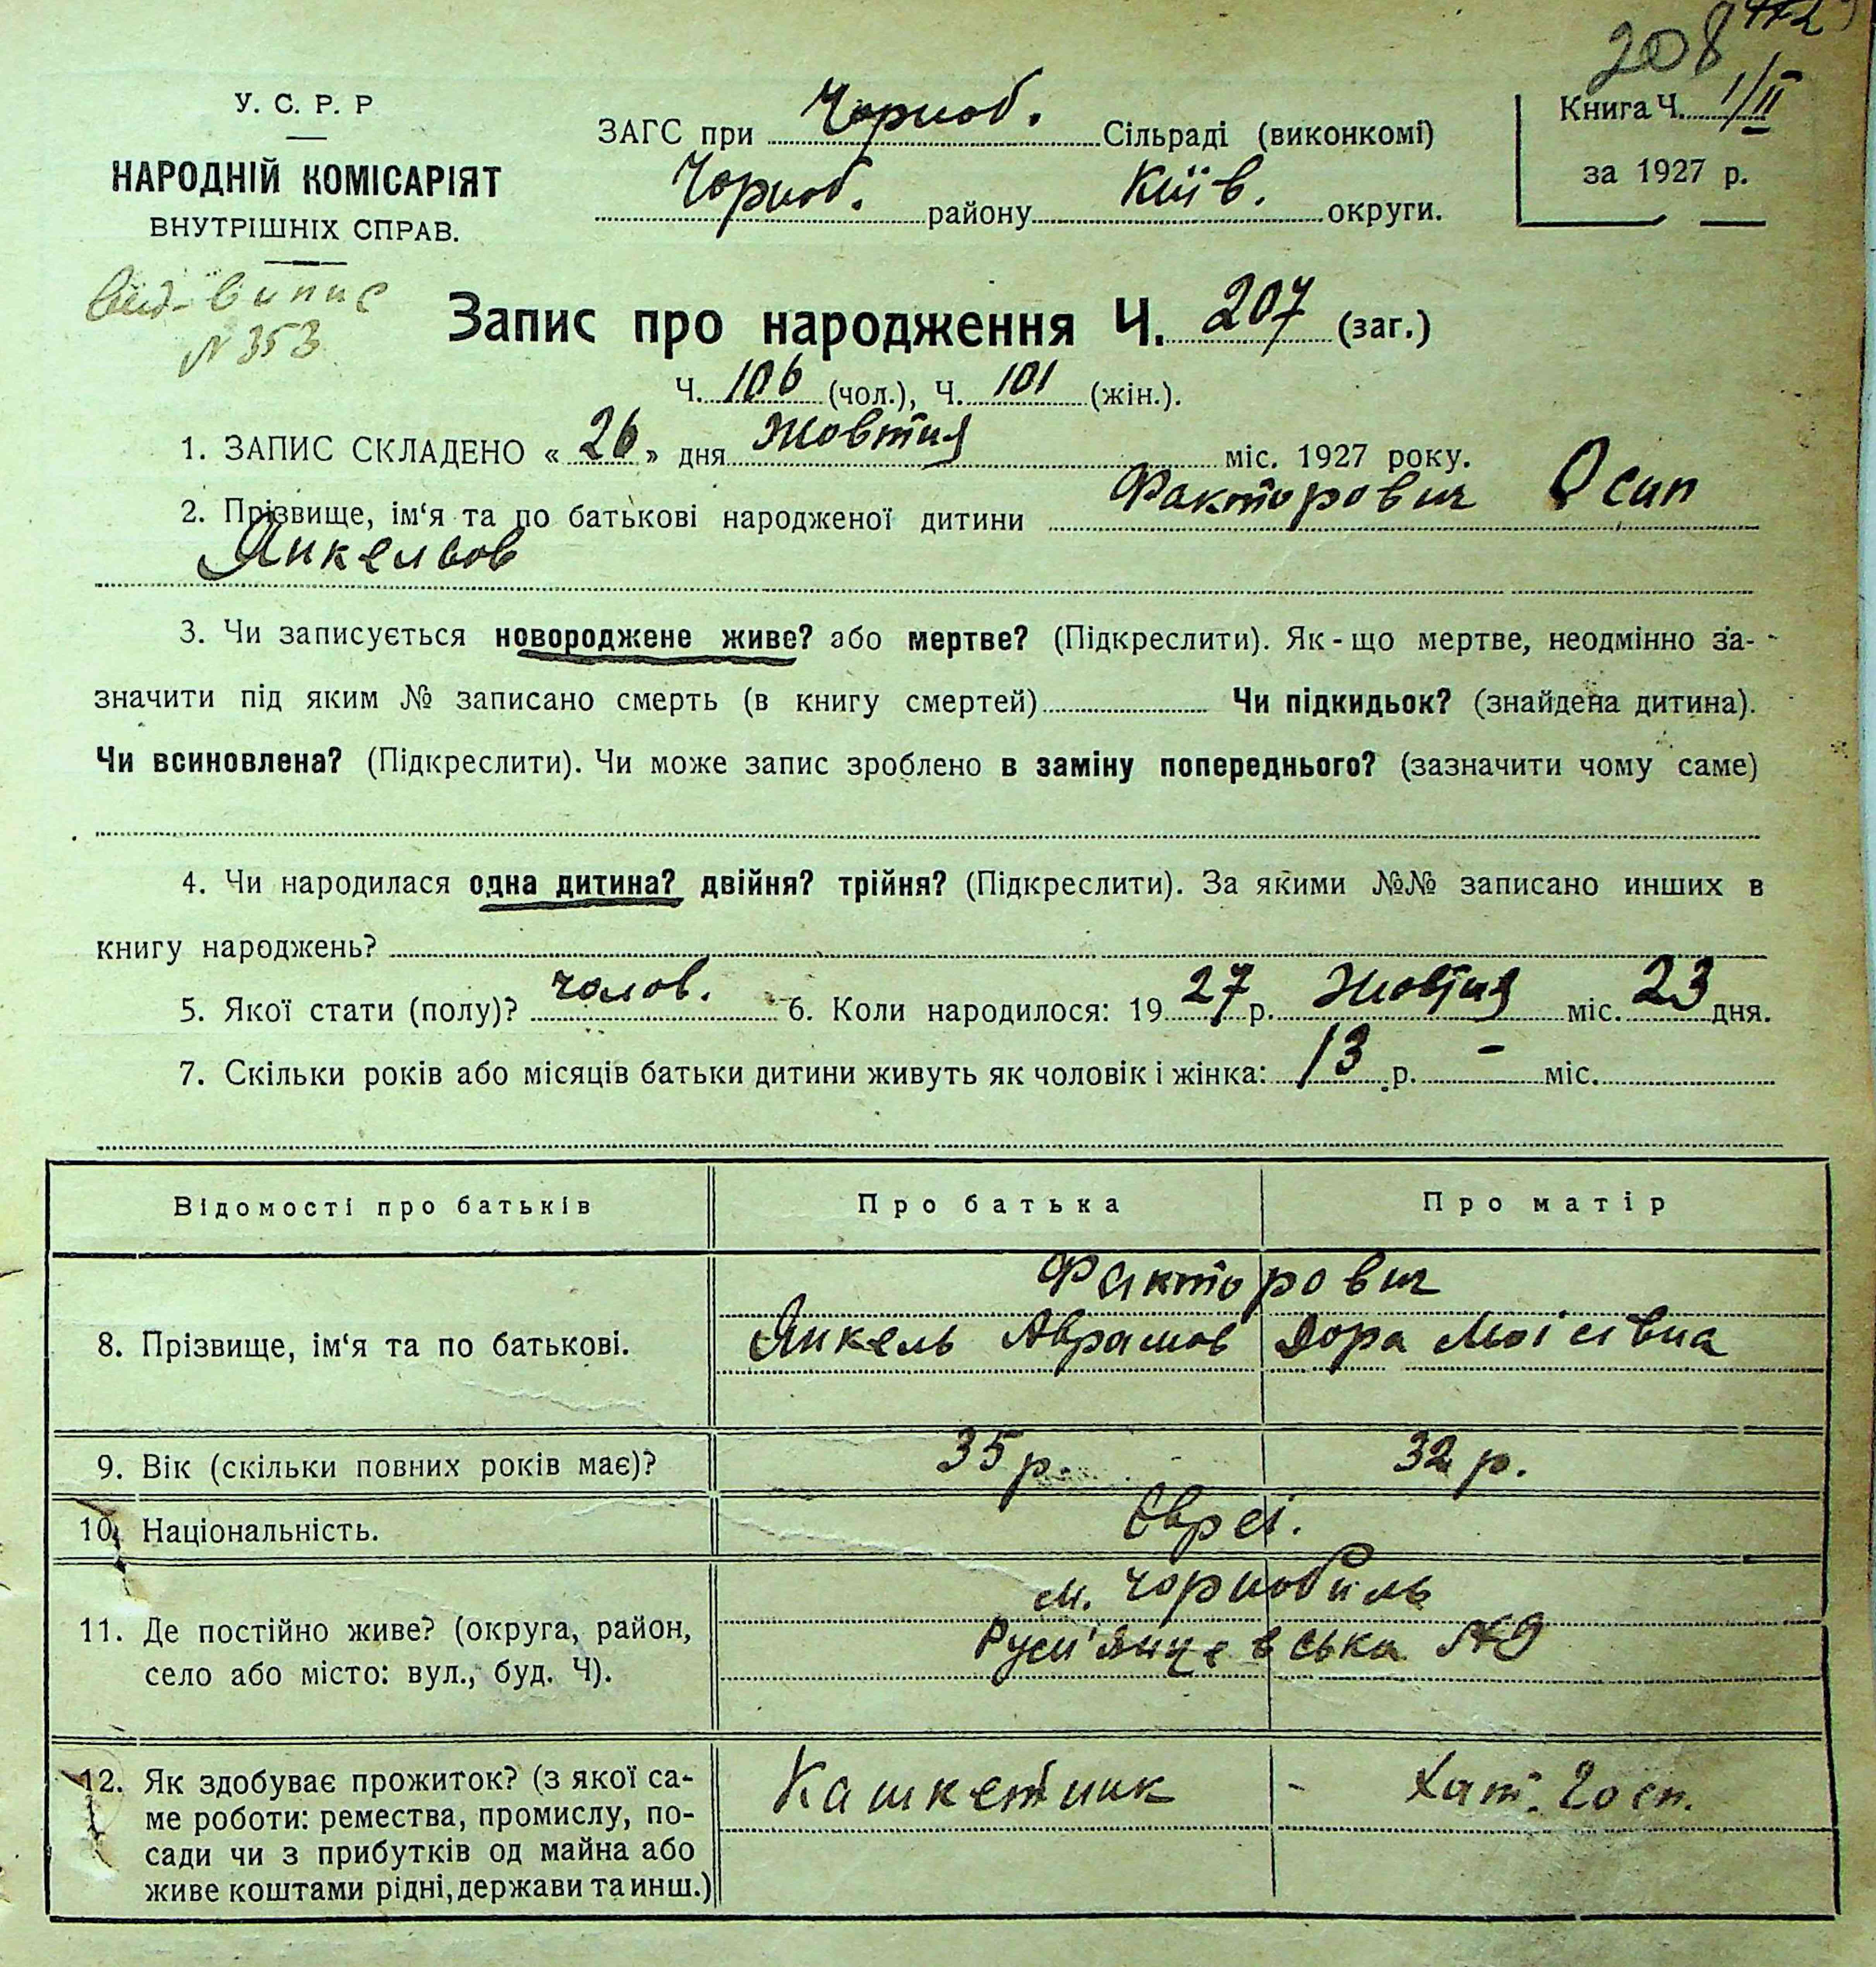 208
У. С. Р. Р
НАРОДНІЙ КОМІСАРІЯТ
ВНУТРІШНІХ СПРАВ.
ЗАГС при Чорноб. Сільраді (виконкомі)
Чорноб. району Київ. округи.
Книга Ч. 1/II
за 1927 р.
Вид. випис
N 353
Запис про народження Ч. 207 (заг.)
Ч. 106 (чол.), Ч. 101 (жін.).
1. ЗАПИС СКЛАДЕНО « 26 » дня Жовтня міс. 1927 року.
2. Прізвище, ім‘я та по батькові народженої дитини Факторович Осип
Янкельов
3. Чи записується новороджене живе? або мертве? (Підкреслити). Як-що мертве, неодмінно за-
значити під яким № записано смерть (в книгу смертей) Чи підкидьок? (знайдена дитина).
Чи всиновлена? (Підкреслити). Чи може запис зроблено в заміну попереднього? (зазначити чому саме)
4. Чи народилася одна дитина? двійня? трійня? (Підкреслити). За якими №№ записано инших в
книгу народжень?
5. Якої стати (полу)? чолов. 6. Коли народилося: 1927 р. Жовтня міс. 23 дня.
7. Скільки років або місяців батьки дитини живуть як чоловік і жінка: 13 р. - міс.
Відомості про батьків Про батька Про матір
Факторович
8. Прізвище, ім‘я та по батькові. Янкель Аврамов Дора Моісівна
9. Вік (скільки повних років має)? 35 р. 32 р.
10. Національність. Євреї.
м. Чорнобиль
11. Де постійно живе? (округа, район,
село або місто: вул., буд. Ч).
№ 9
12. Як здобуває прожиток? (з якої са-
ме роботи: ремества, промислу, по-
сади чи з прибутків од майна або
живе коштами рідні, держави та инш.)
Кашкетник - Хат. госп.